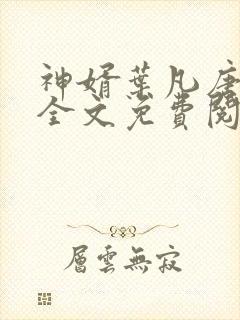 神婿葉凡唐
全文免費閱
層雲無寂